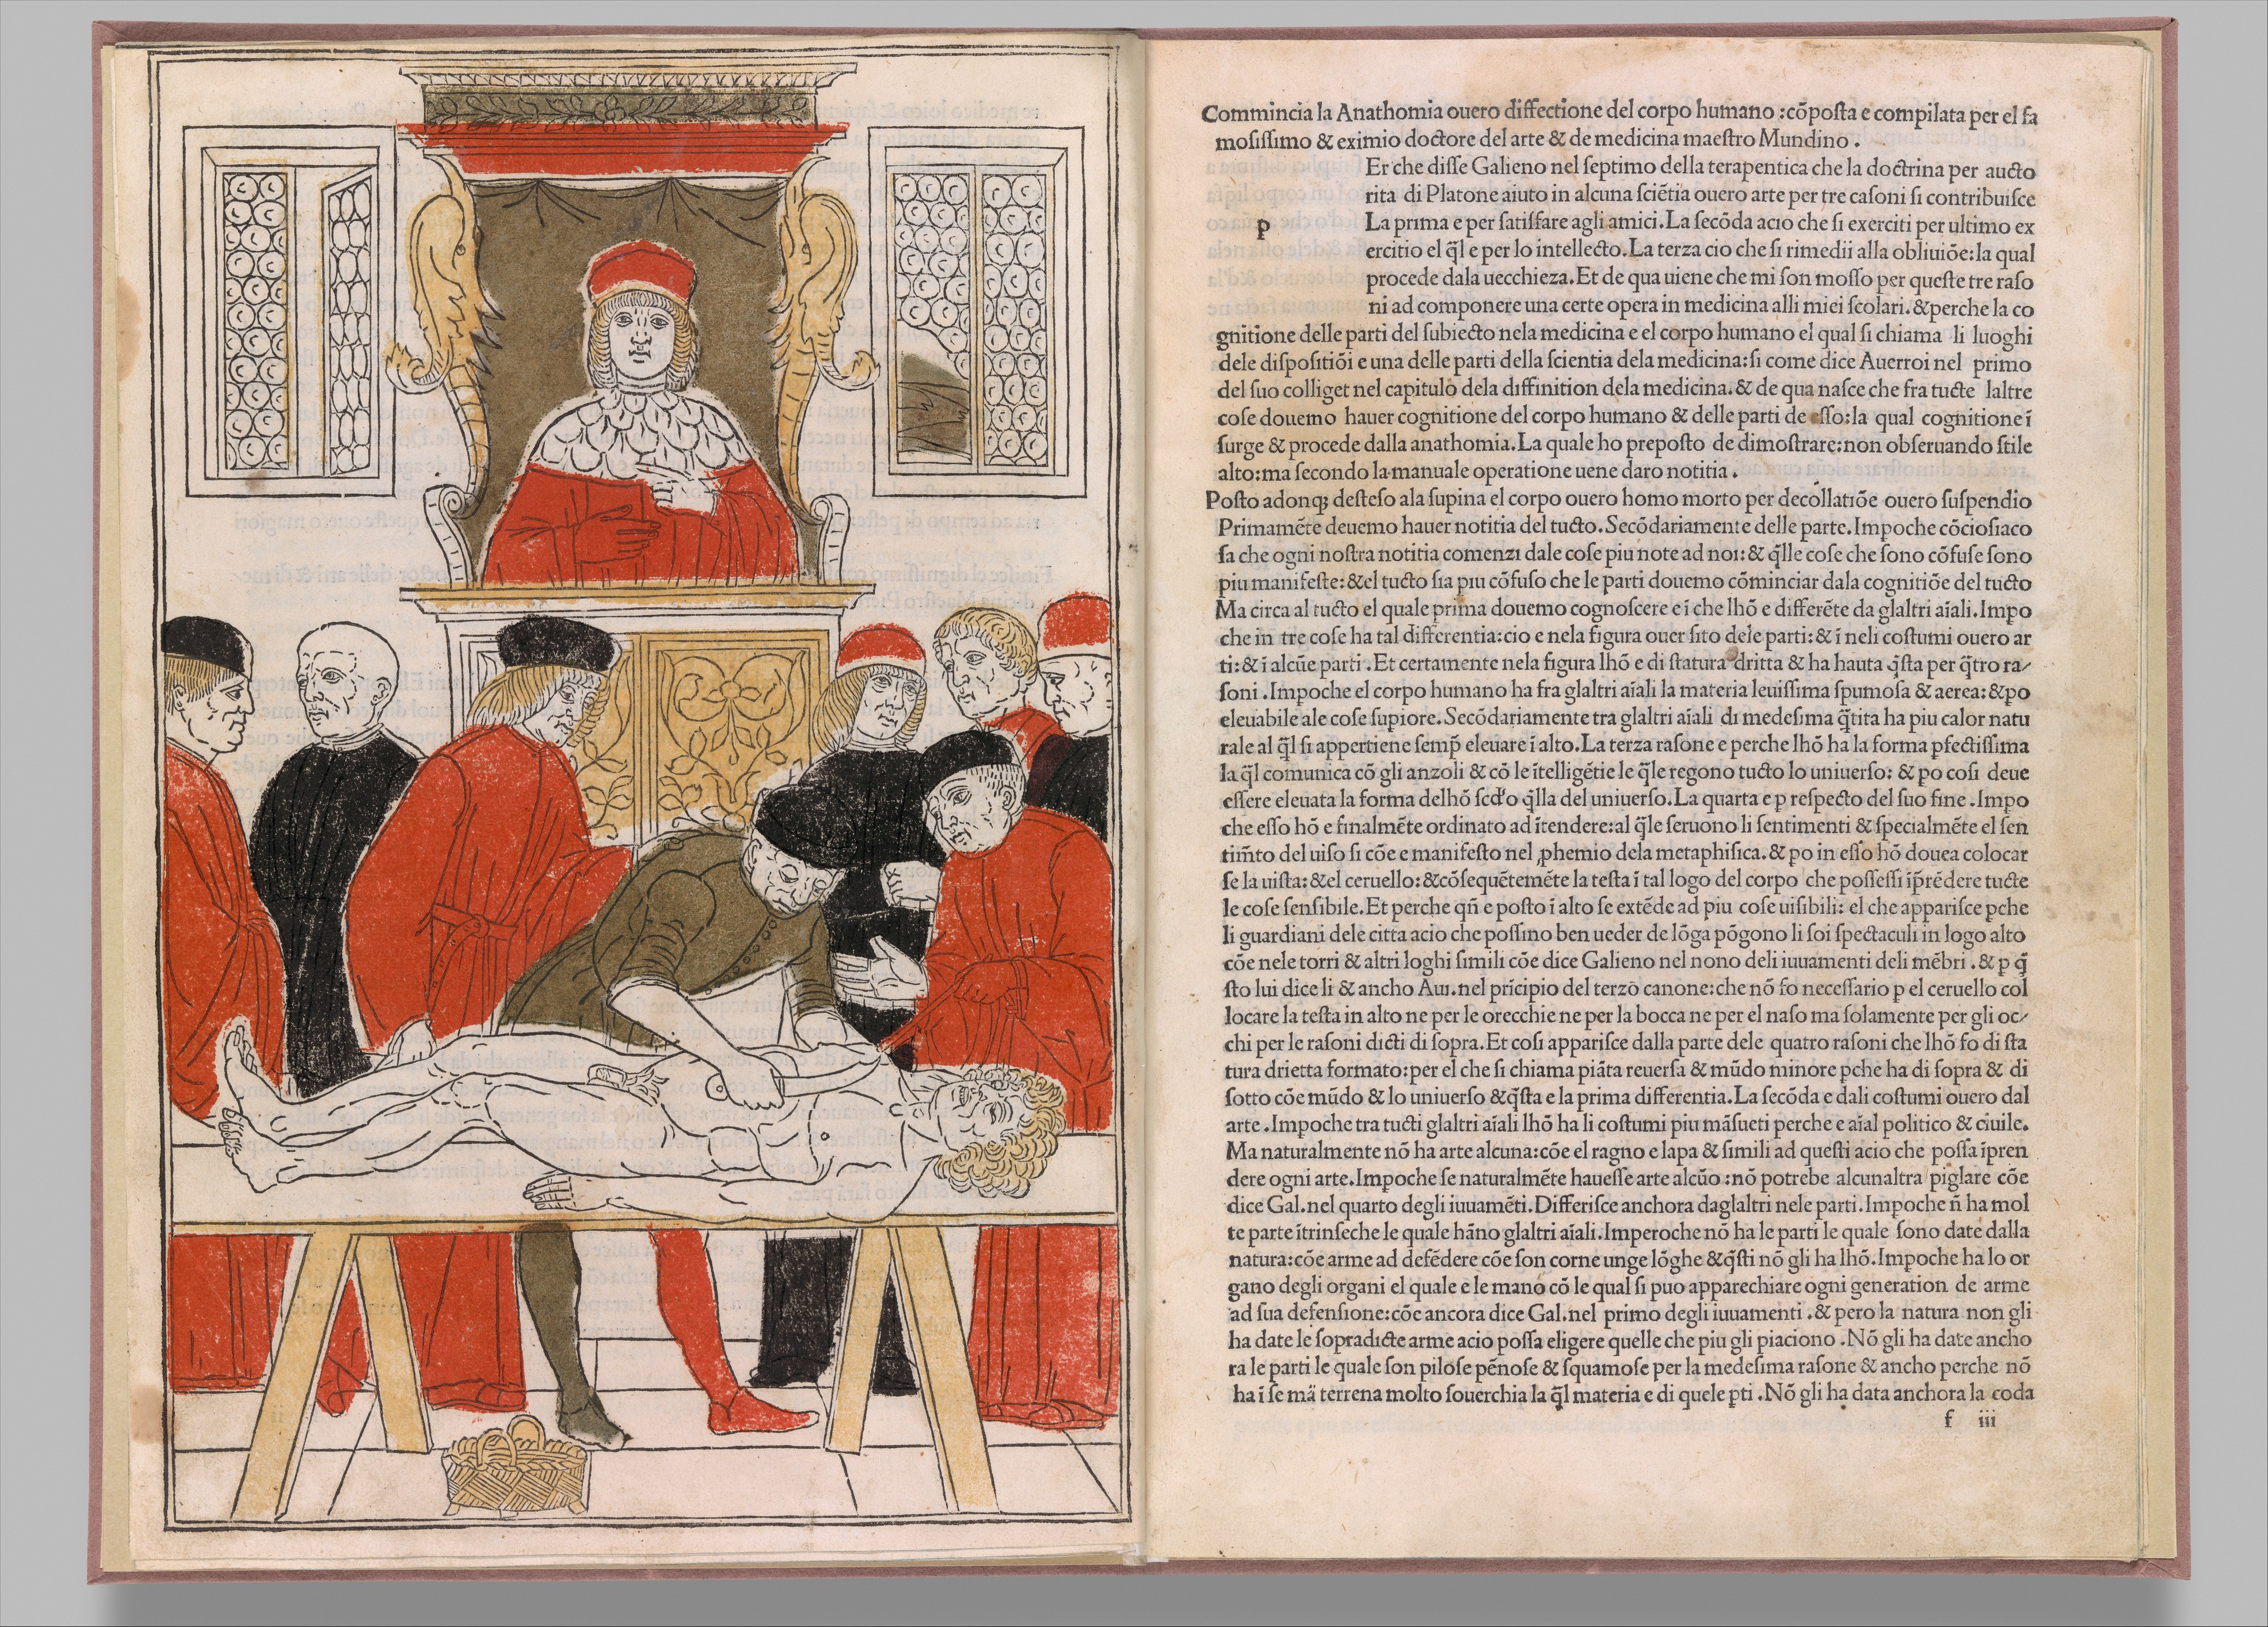 Commincia la Anathomia ouero diſſectione del corpo humano :cõpoſta e compilata per el fa
moſiſſimo & eximio doctore del arte & de medicina maeſtro Mundino .
Er che diſſe Galieno nel ſeptimo della terapentica che la doctrina per aucto
rita di Platone aiuto in alcuna ſciẽtia ouero arte per tre caſoni ſi contribuiſce
p La prima e per ſatiſfare agli amici.La ſecõda acio che ſi exerciti per ultimo ex
ercitio el q̃l e per lo intellecto.La terza cio che ſi rimedii alla obliuiõe:la qual
procede dala uecchieza.Et de qua uiene che mi ſon moſſo per queſte tre raſo
ni ad componere una certe opera in medicina alli miei ſcolari.&perche la co
gnitione delle parti del ſubiecto nela medicina e el corpo humano el qual ſi chiama li luoghi
dele diſpoſitiõi e una delle parti della ſcientia dela medicina:ſi come dice Auerroi nel primo
del ſuo colliget nel capitulo dela diffinition dela medicina.& de qua naſce che fra tucte laltre
coſe douemo hauer cognitione del corpo humano & delle parti de eſſo:la qual cognitione ĩ
ſurge & procede dalla anathomia.La quale ho prepoſto de dimoſtrare:non obſeruando ſtile
alto:ma ſecondo la manuale operatione uene daro notitia .
Poſto adonqꝫ deſteſo ala ſupina el corpo ouero homo morto per decollatiõe ouero ſuſpendio
Primamẽte deuemo hauer notitia del tucto.Secõdariamente delle parte.Impoche cõcioſiaco
ſa che ogni noſtra notitia comenzi dale coſe piu note ad noi:& q̃lle coſe che ſono cõfuſe ſono
piu manifeſte:&el tucto ſia piu cõfuſo che le parti douemo cõminciar dala cognitiõe del tucto
Ma circa al tucto el quale prima douemo cognoſcere e ĩ che lhõ e differẽte da glaltri aĩali.Impo
che in tre coſe ha tal differentia:cio e nela figura ouer ſito dele parti:& ĩ neli coſtumi ouero ar
ti:& ĩ alcũe parti .Et certamente nela figura lhõ e di ſtatura dritta & ha hauta q̃ſta per q̃tro ra-
ſoni .Impoche el corpo humano ha fra glaltri aĩali la materia leuiſſima ſpumoſa & aerea:&po
eleuabile ale coſe ſupiore.Secõdariamente tra glaltri aĩali di medeſima q̃tita ha piu calor natu
rale al q̃l ſi appertiene ſemp̃ eleuare ĩ alto.La terza raſone e perche lhõ ha la forma pfectiſſima
la q̃l comunica cõ gli anzoli & cõ le ĩtelligẽtie le q̃le regono tucto lo uniuerſo: & po coſi deue
eſſere eleuata la forma delhõ ſcd'o q̃lla del uniuerſo.La quarta e p reſpecto del ſuo fine .Impo
che eſſo hõ e finalmẽte ordinato ad ĩtendere:al q̃le ſeruono li ſentimenti & ſpecialmẽte el ſen
tim̃to del uiſo ſi cõe e manifeſto nel ꝓhemio dela metaphiſica.& po in eſſo hõ douea colocar
ſe la uiſta:&el ceruello:&cõſequẽtemẽte la teſta ĩ tal logo del corpo che poſſeſſi ĩp̃rẽdere tucte
le coſe ſenſibile.Et perche qñ e poſto ĩ alto ſe extẽde ad piu coſe uiſibili: el che appariſce pche
li guardiani dele citta acio che poſſino ben ueder de lõga põgono li ſoi ſpectaculi in logo alto
cõe nele torri & altri loghi ſimili cõe dice Galieno nel nono deli iuuamenti deli mẽbri .& p q̃
ſto lui dice li & ancho Aui.nel pricipio del terzo canone:che nõ fo neceſſario p el ceruello col
locare la teſta in alto ne per le orecchie ne per la bocca ne per el naſo ma ſolamente per gli oc-
chi per le raſoni dicti di ſopra.Et coſi appariſce dalla parte dele quatro raſoni che lhõ fo di ſta
tura drietta formato:per el che ſi chiama piãta reuerſa & mũdo minore pche ha di ſopra & di
ſotto cõe mũdo & lo uniuerſo &q̃ſta e la prima differentia.La ſecõda e dali coſtumi ouero dal
arte .Impoche tra tucti glaltri aĩali lhõ ha li coſtumi piu mãſueti perche e aĩal politico & ciuile.
Ma naturalmente nõ ha arte alcuna:cõe el ragno e lapa & ſimili ad queſti acio che poſſa ĩpren
dere ogni arte.Impoche ſe naturalmẽte haueſſe arte alcũo :nõ potrebe alcunaltra piglare cõe
dice Gal.nel quarto degli iuuamẽti.Differiſce anchora daglaltri nele parti.Impoche ñ ha mol
te parte ĩtrinſeche le quale hãno glaltri aĩali.Imperoche nõ ha le parti le quale ſono date dalla
natura:cõe arme ad defẽdere cõe ſon corne unge lõghe &q̃ſti nõ gli ha lhõ.Impoche ha lo or
gano degli organi el quale e le mano cõ le qual ſi puo apparechiare ogni generation de arme
ad ſua defenſione:cõe ancora dice Gal.nel primo degli iuuamenti .& pero la natura non gli
ha date le ſopradicte arme acio poſſa eligere quelle che piu gli piaciono .Nõ gli ha date ancho
ra le parti le quale ſon piloſe pẽnoſe & ſquamoſe per la medeſima raſone & ancho perche nõ
ha ĩ ſe mã terrena molto ſouerchia la q̃l materia e di quele pti .Nõ gli ha data anchora la coda
f iii